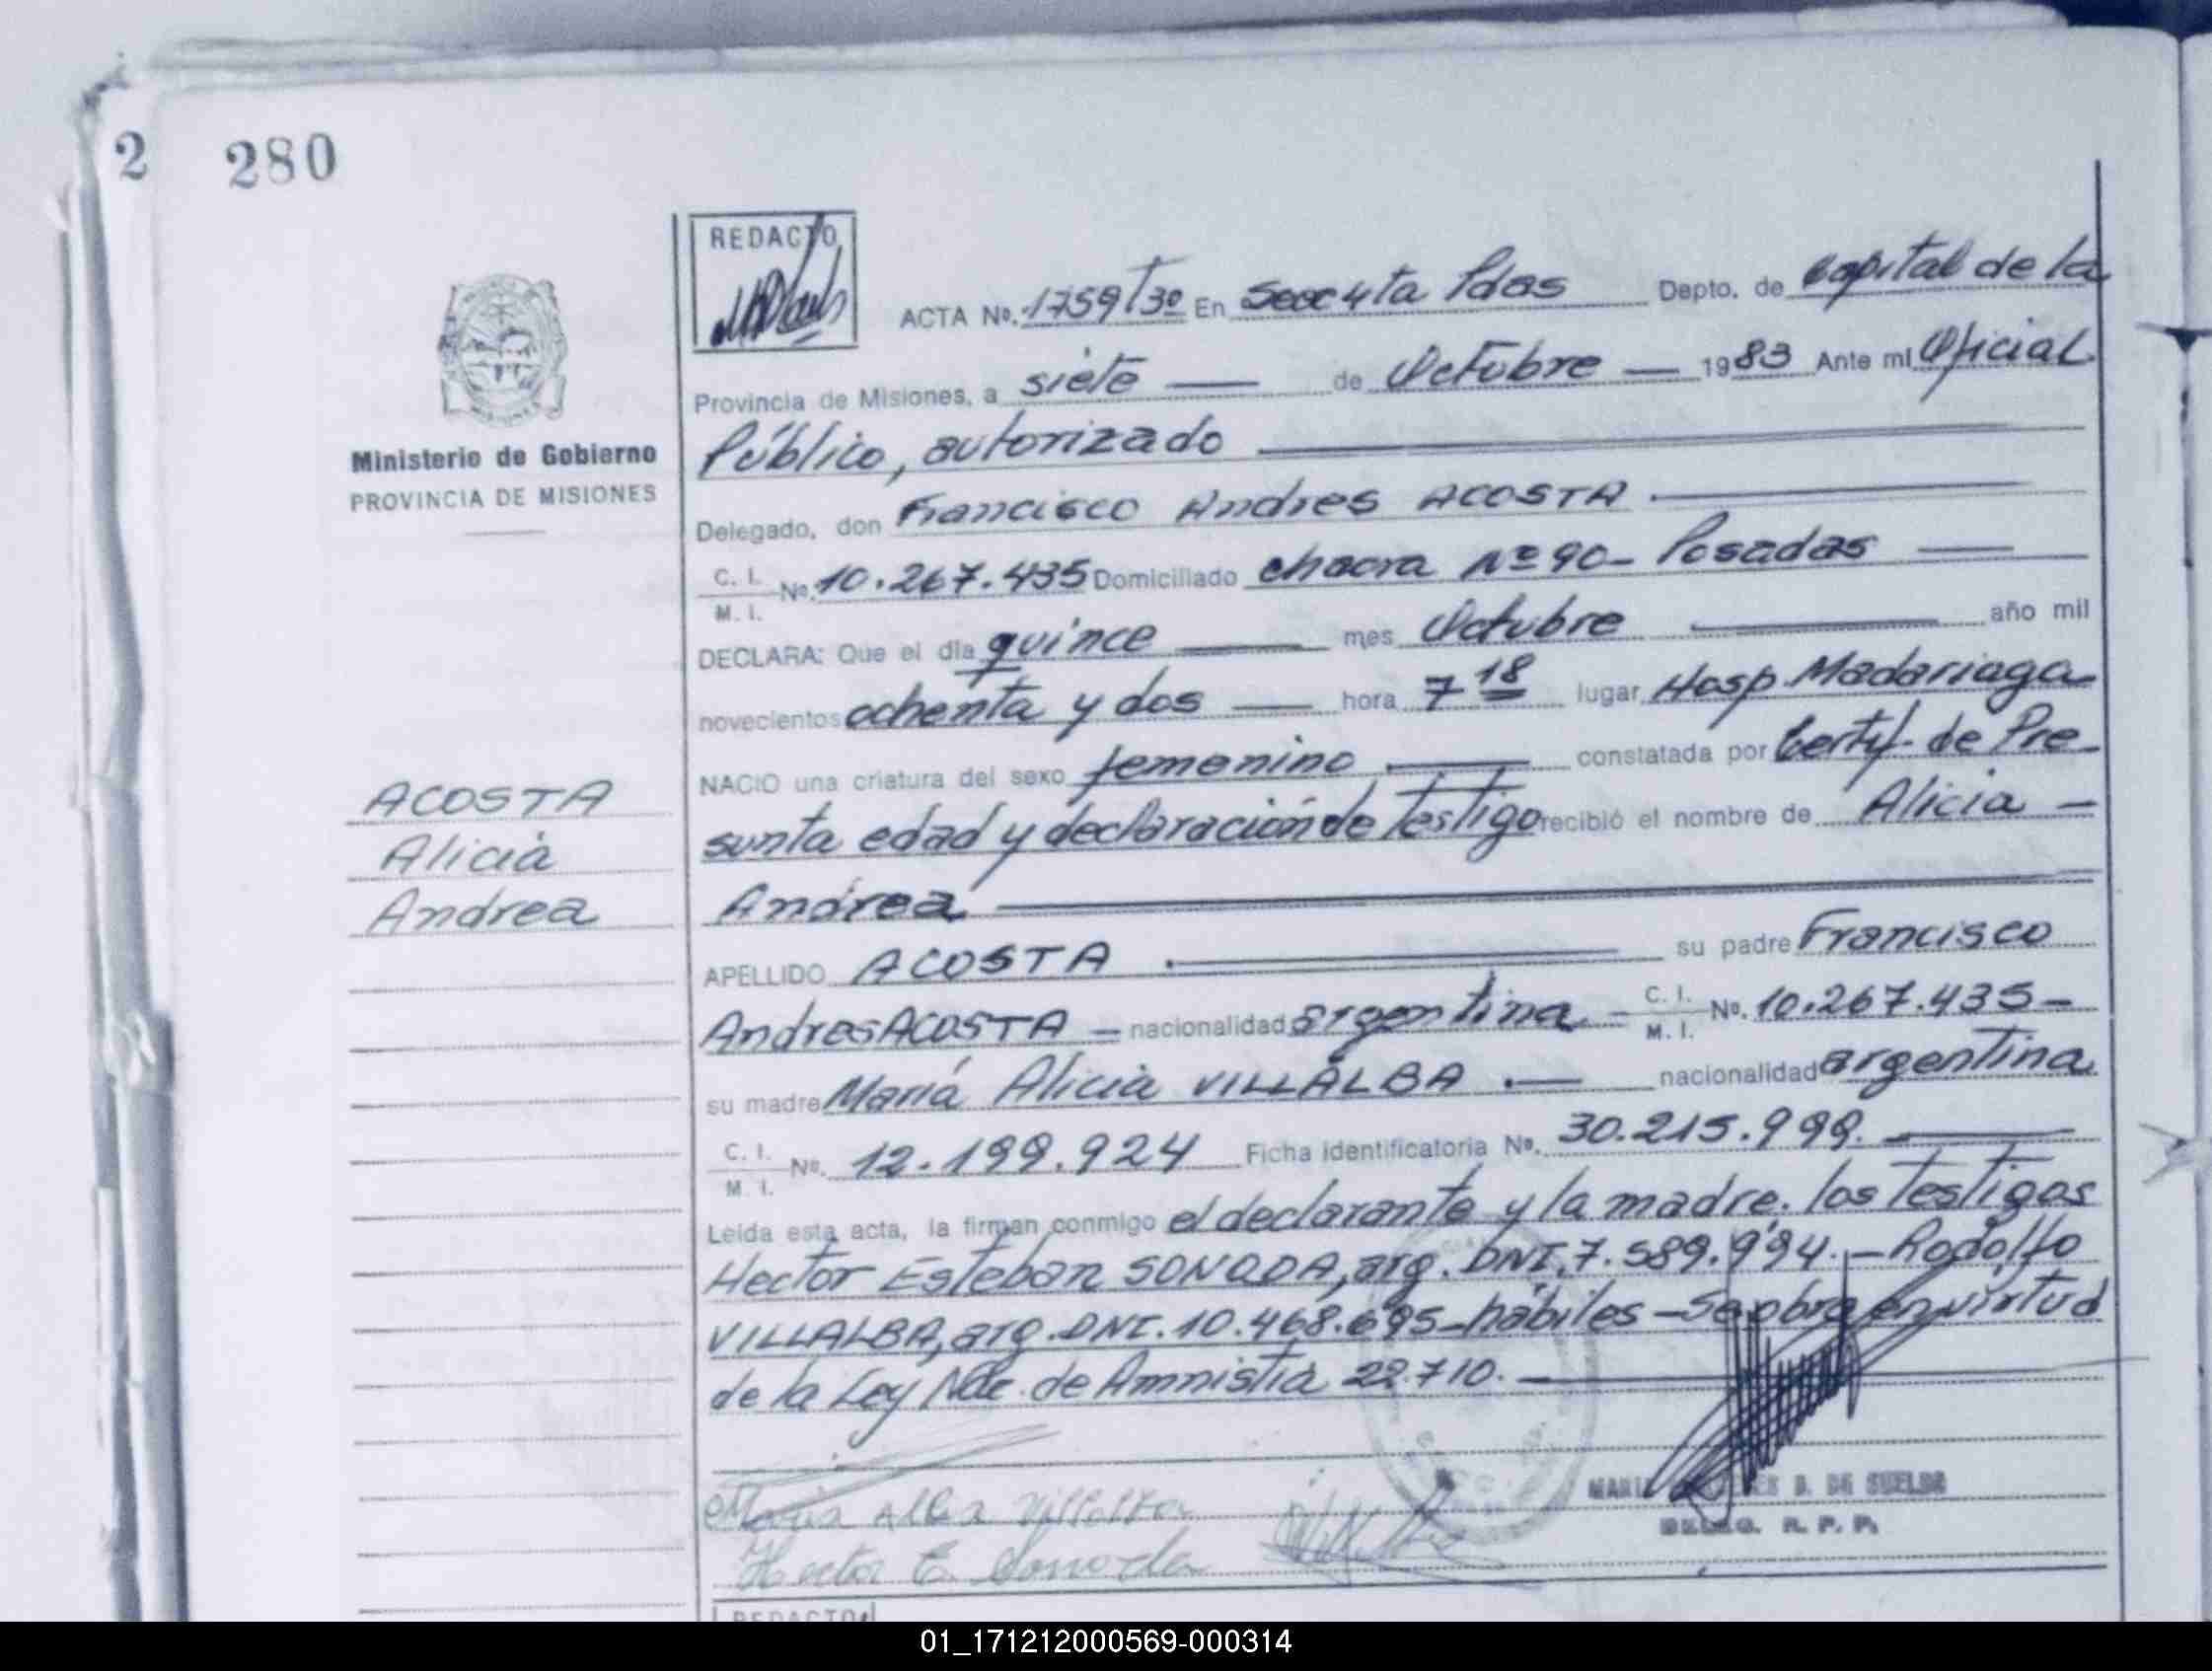 2 280
REDACTO
ACTA No. 1759 T 30 En Secc 4ta Pdas Depto. de Capital de la
Provincia de Misiones, a siete de Octubre 1983 Ante mi Oficial
Público, autorizado
Ministerio de Gobierno
PROVINCIA DE MISIONES
Delegado, don Francisco Andres ACOSTA
C. I.
M. I. No. 10.267.435 Domiciliado chacra Nº 90 - Posadas
DECLARA: Que el dia quince mes Octubre año mil
novecientos ochenta y dos hora 7 18 lugar Hosp Madariaga
NACIO una criatura del sexo femenino constatada por Certif. de Pre
sunta edad y declaración de testigo recibió el nombre de Alicia
Andrea
ACOSTA
Alicia
Andrea
APELLIDO ACOSTA su padre Francisco
Andres ACOSTA nacionalidad argentina C. I. M. I. No. 10.267.435
su madre María Alicia VILLALBA nacionalidad argentina
C. I.
M. I. No. 12.199.924 Ficha identificatoria No. 30.215.999.
Leida esta acta, la firman conmigo el declarante y la madre. los testigos
Hector Esteban SONODA, arg. DNI. 7.589.994. - Rodolfo
VILLALBA, arg. DNI. 10.468.695 - hábiles - Se obra en virtud
de la Ley Nac. de Amnistía 22.710.
Maria Villalba
Hector E. Sonoda
D. DE SUELDO
DELEG. R. P. P.
REDACTO
01_171212000569-000314